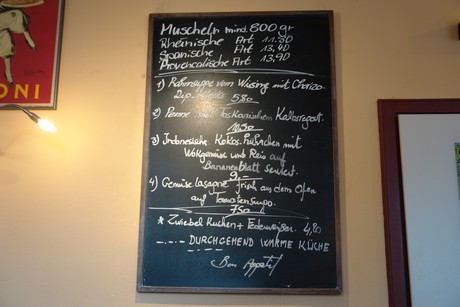 Muscheln mind. 800 gr
Rheinische Art 11.30
Spanische Art 13,40
Provencalische Art 13,90
1) Rahmsuppe vom Wirsing mit Chorizo
5.80
2) Penne mit toskanischem Kalbsragout
3) Indonesische Kokos hühnchen mit
Wokgemüse und Reis auf
Bananenblatt serviert.
9,-
4) Gemüselasagne frisch aus dem Ofen
auf Tomatensugo.
7.50
* Zwiebel Kuchen + Federweißer. 4,80
DURCHGEHEND WARME KÜCHE
Bon Appetit
ONI